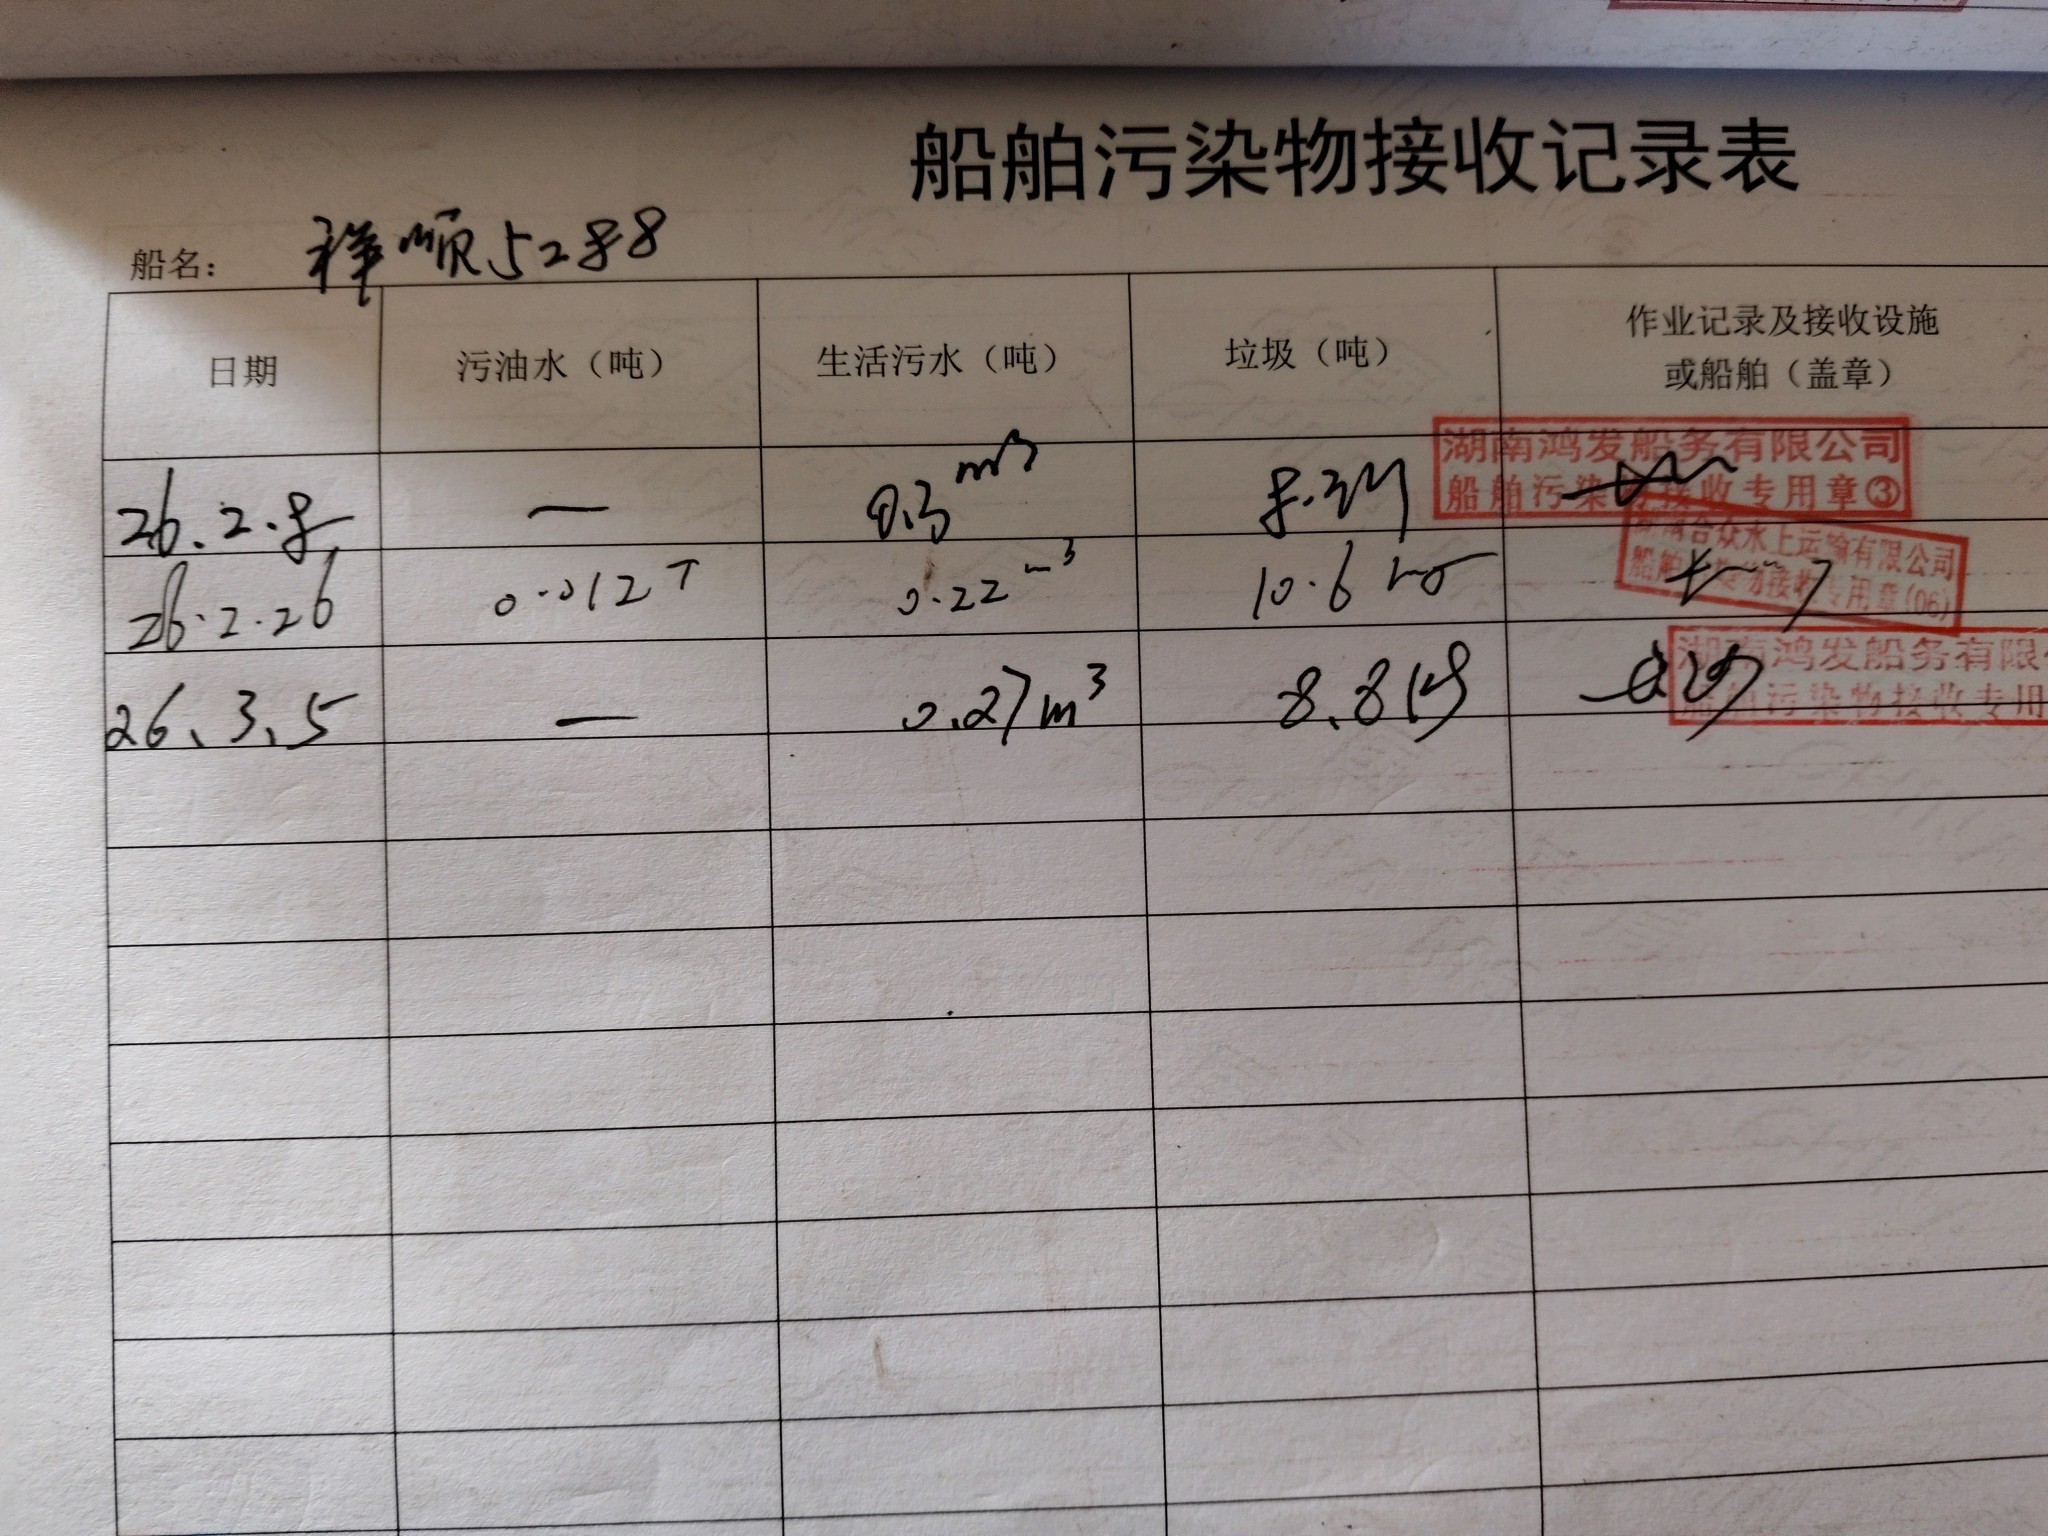 船舶污染物接收记录表
船名： 祥顺5288
日期 污油水（吨） 生活污水（吨） 垃圾（吨） 作业记录及接收设施
或船舶（盖章）
湖南鸿发船务有限公司
船舶污染物接收专用章③
26.2.8 — 0.3m³ 8.3
湖南合众水上运输有限公司
船舶污染物接收专用章(06)
26.2.26 0.012T 0.22m³ 10.6
湖南鸿发船务有限
船舶污染物接收专用
26、3、5 — 0.27m³ 8.8